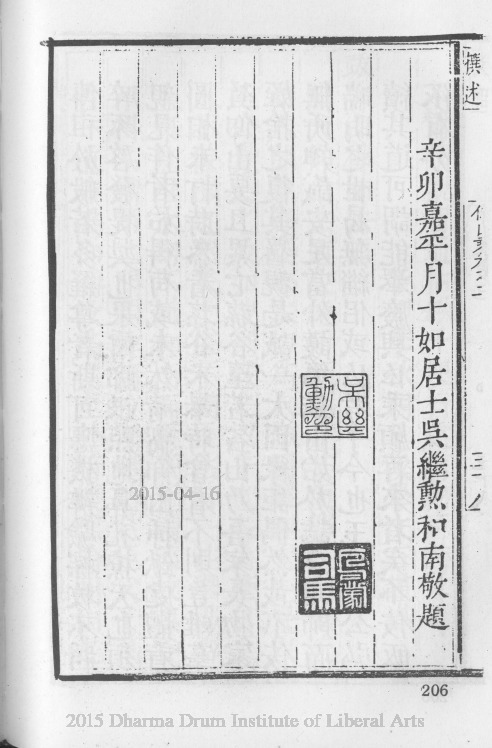 撰述
辛卯嘉平月十如居士吳繼勲和南敬題
吳繼勲印
司馬
2015-04-16
206
2015 Dharma Drum Institute of Liberal Arts